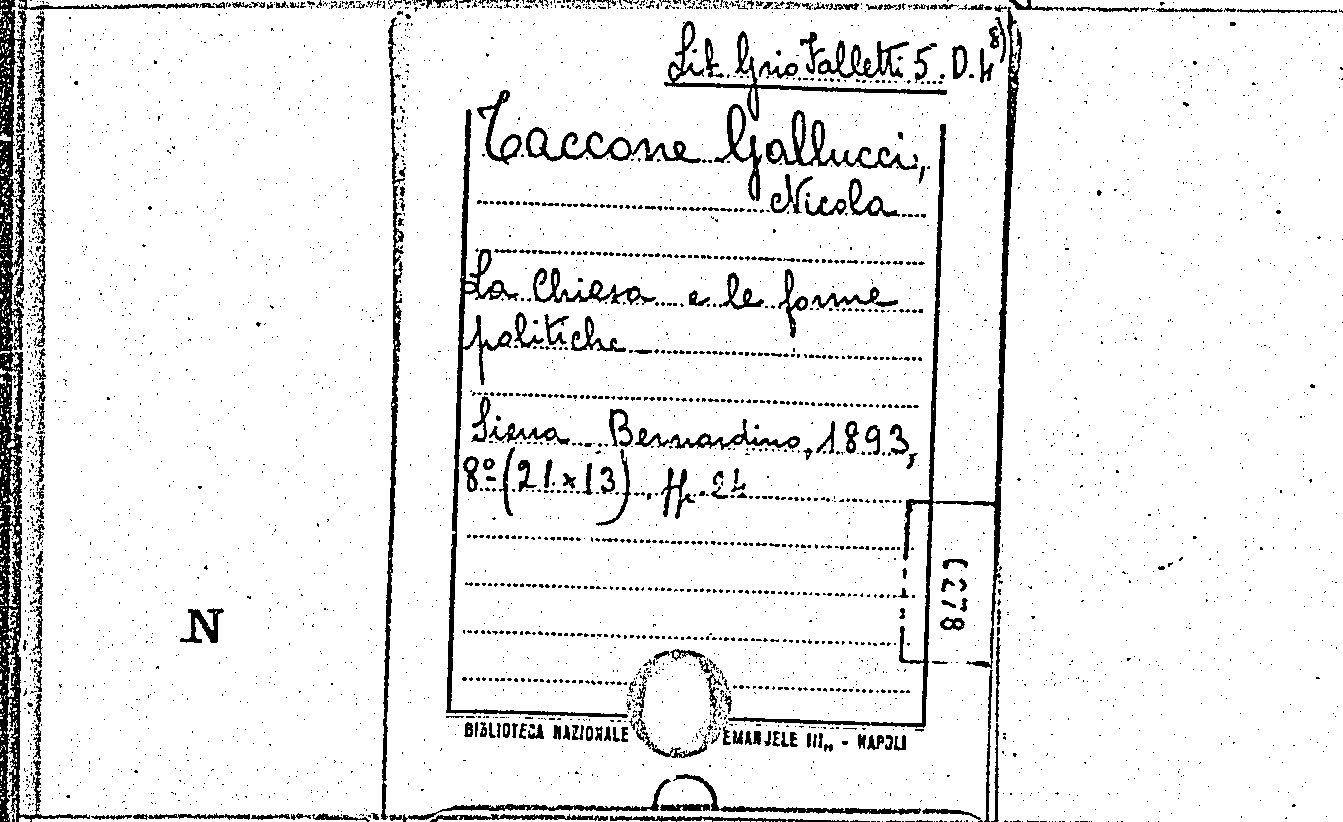 Lit. Grio Falletti 5. D. 4 8)
Taccone Gallucci,
Nicola
La Chiesa e le forme
politiche
Siena Bernardino, 1893,
8º (21 x 13). pp. 24
N
BIBLIOTECA NAZIONALE EMANUELE III„ - NAPOLI